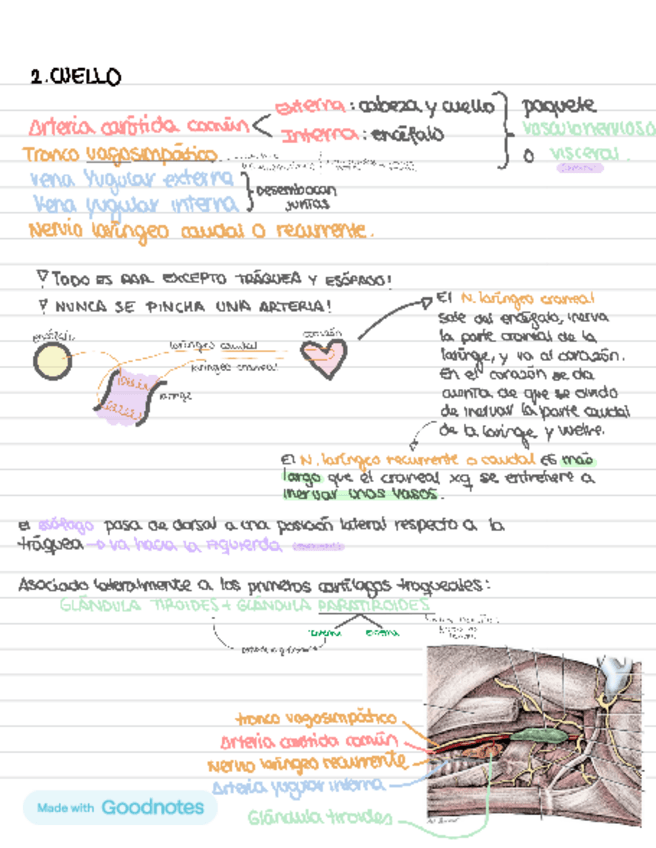 2. CUELLO
Arteria carótida común < Externa : cabeza y cuello
Interna : encéfalo
paquete
vasculonervioso
o visceral
Tronco vagosimpático
Vena Yugular externa
Vena yugular interna
Desembocan
juntas
Nervio laríngeo caudal o recurrente.
TODO ES PAR EXCEPTO TRÁQUEA Y ESÓFAGO!
NUNCA SE PINCHA UNA ARTERIA!
encéfalo
laríngeo caudal
laríngeo craneal
corazón
laringe
El N. laríngeo craneal
sale del encéfalo, inerva
la parte craneal de la
laringe, y va al corazón.
En el corazón se da
cuenta de que se olvidó
de inervar la parte caudal
de la laringe y vuelve.
El N. laríngeo recurrente o caudal es más
largo que el craneal xq se entretiene a
inervar unos vasos.
El esófago pasa de dorsal a una posición lateral respecto a la
tráquea → va hacia la izquierda
Asociado lateralmente a los primeros cartílagos traqueales:
GLÁNDULA TIROIDES + GLÁNDULA PARATIROIDES
interna
externa
tronco vagosimpático
Arteria carótida común
Nervio laríngeo recurrente
Arteria yugular interna
Glándula tiroides
Made with Goodnotes